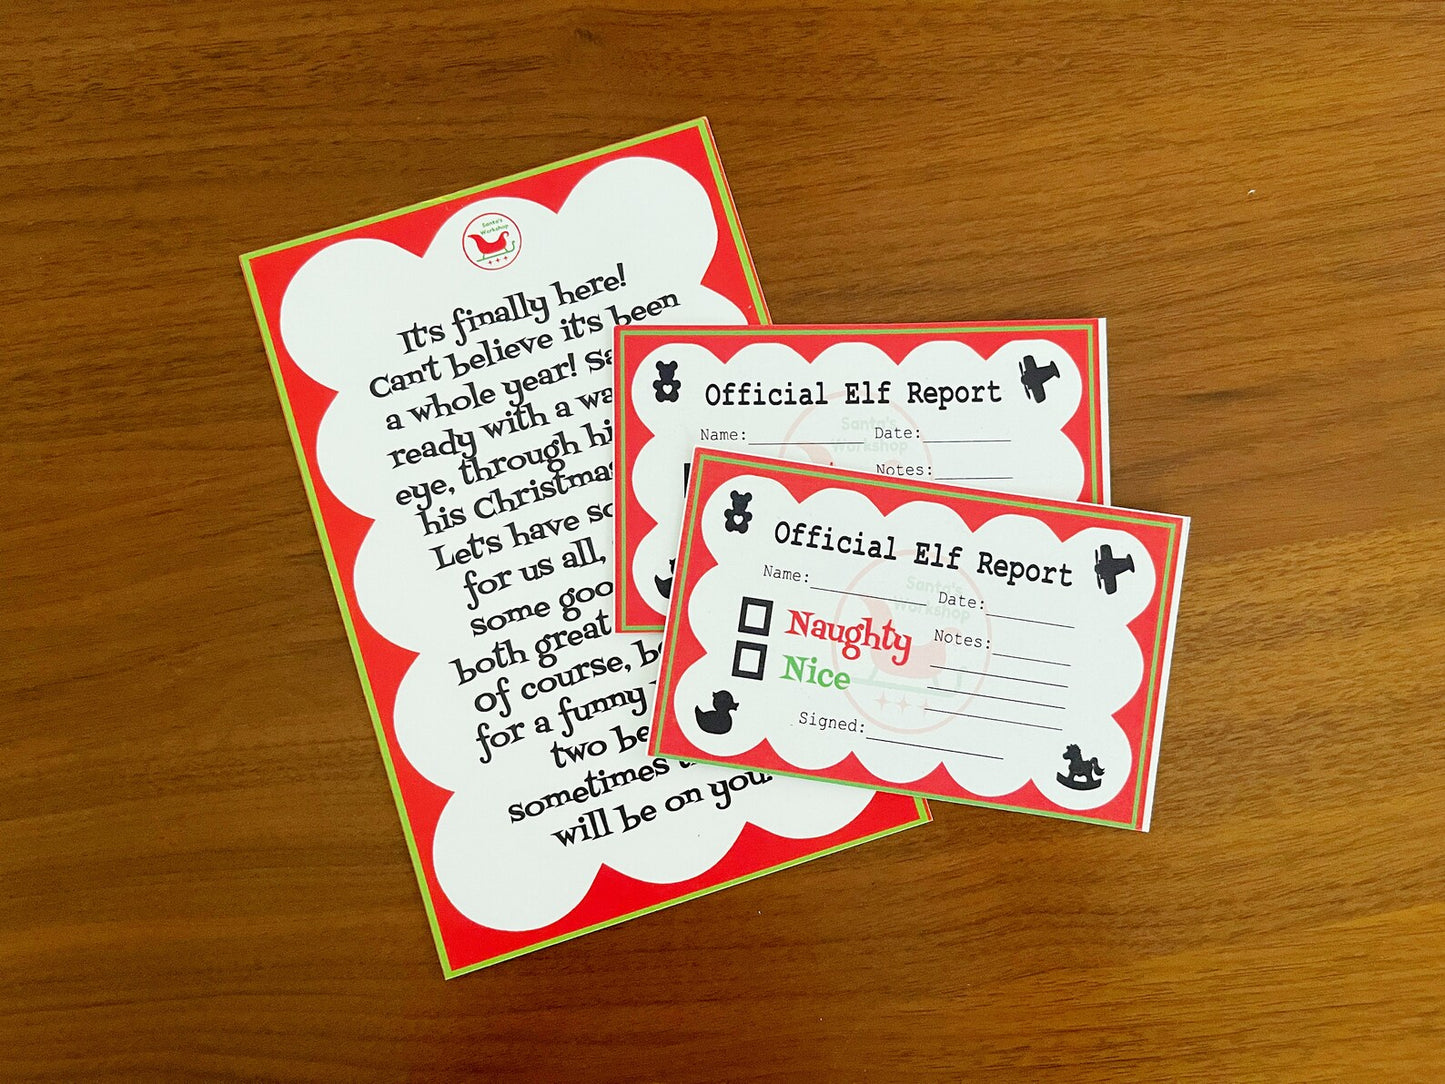 Santa's
Workshop
It's finally here!
Can't believe it's been
a whole year!
ready with a
eye, through
his Christmas
Let's have
for us all,
some
both great
of course,
for a funny
two
sometimes
will be on you.
Official Elf Report
Santa's
Workshop
Name: Date:
Notes:
Official Elf Report
Santa's
Workshop
Name: Date:
Naughty Notes:
Nice
Signed: